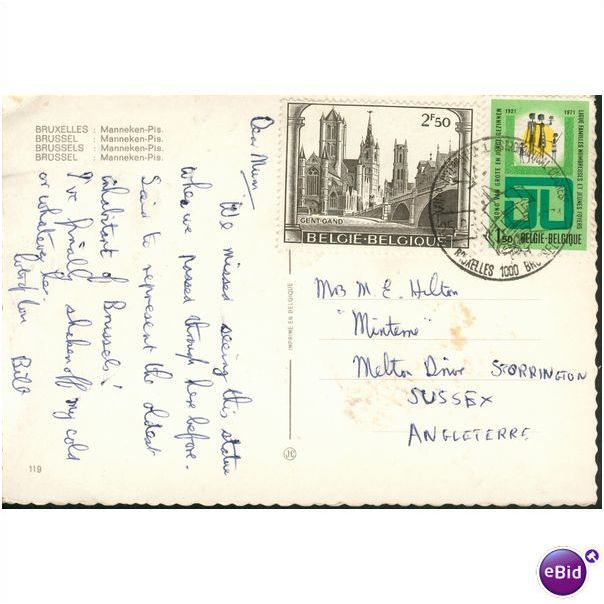 BRUXELLES : Manneken-Pis.
BRUSSEL : Manneken-Pis.
BRUSSELS : Manneken-Pis.
BRÜSSEL : Manneken-Pis.
Dear Mum,
We missed seeing this statue
when we passed through here before.
Said to represent the oldest
inhabitant of Brussels!
I've finally shaken off my cold
or whatever
Lots of love
Bill
119
IMPRIMÉ EN BELGIQUE
2F50
GENT-GAND
BELGIË-BELGIQUE
1921 1971
BOND VAN GROTE EN JONGE GEZINNEN
LIGUE FAMILLES NOMBREUSES ET JEUNES FOYERS
50
1F50 BELGIË-BELGIQUE
BRUXELLES 1000
Mrs M. E. Hilton
"Minterne"
Melton Drive STORRINGTON
SUSSEX
ANGLETERRE
eBid